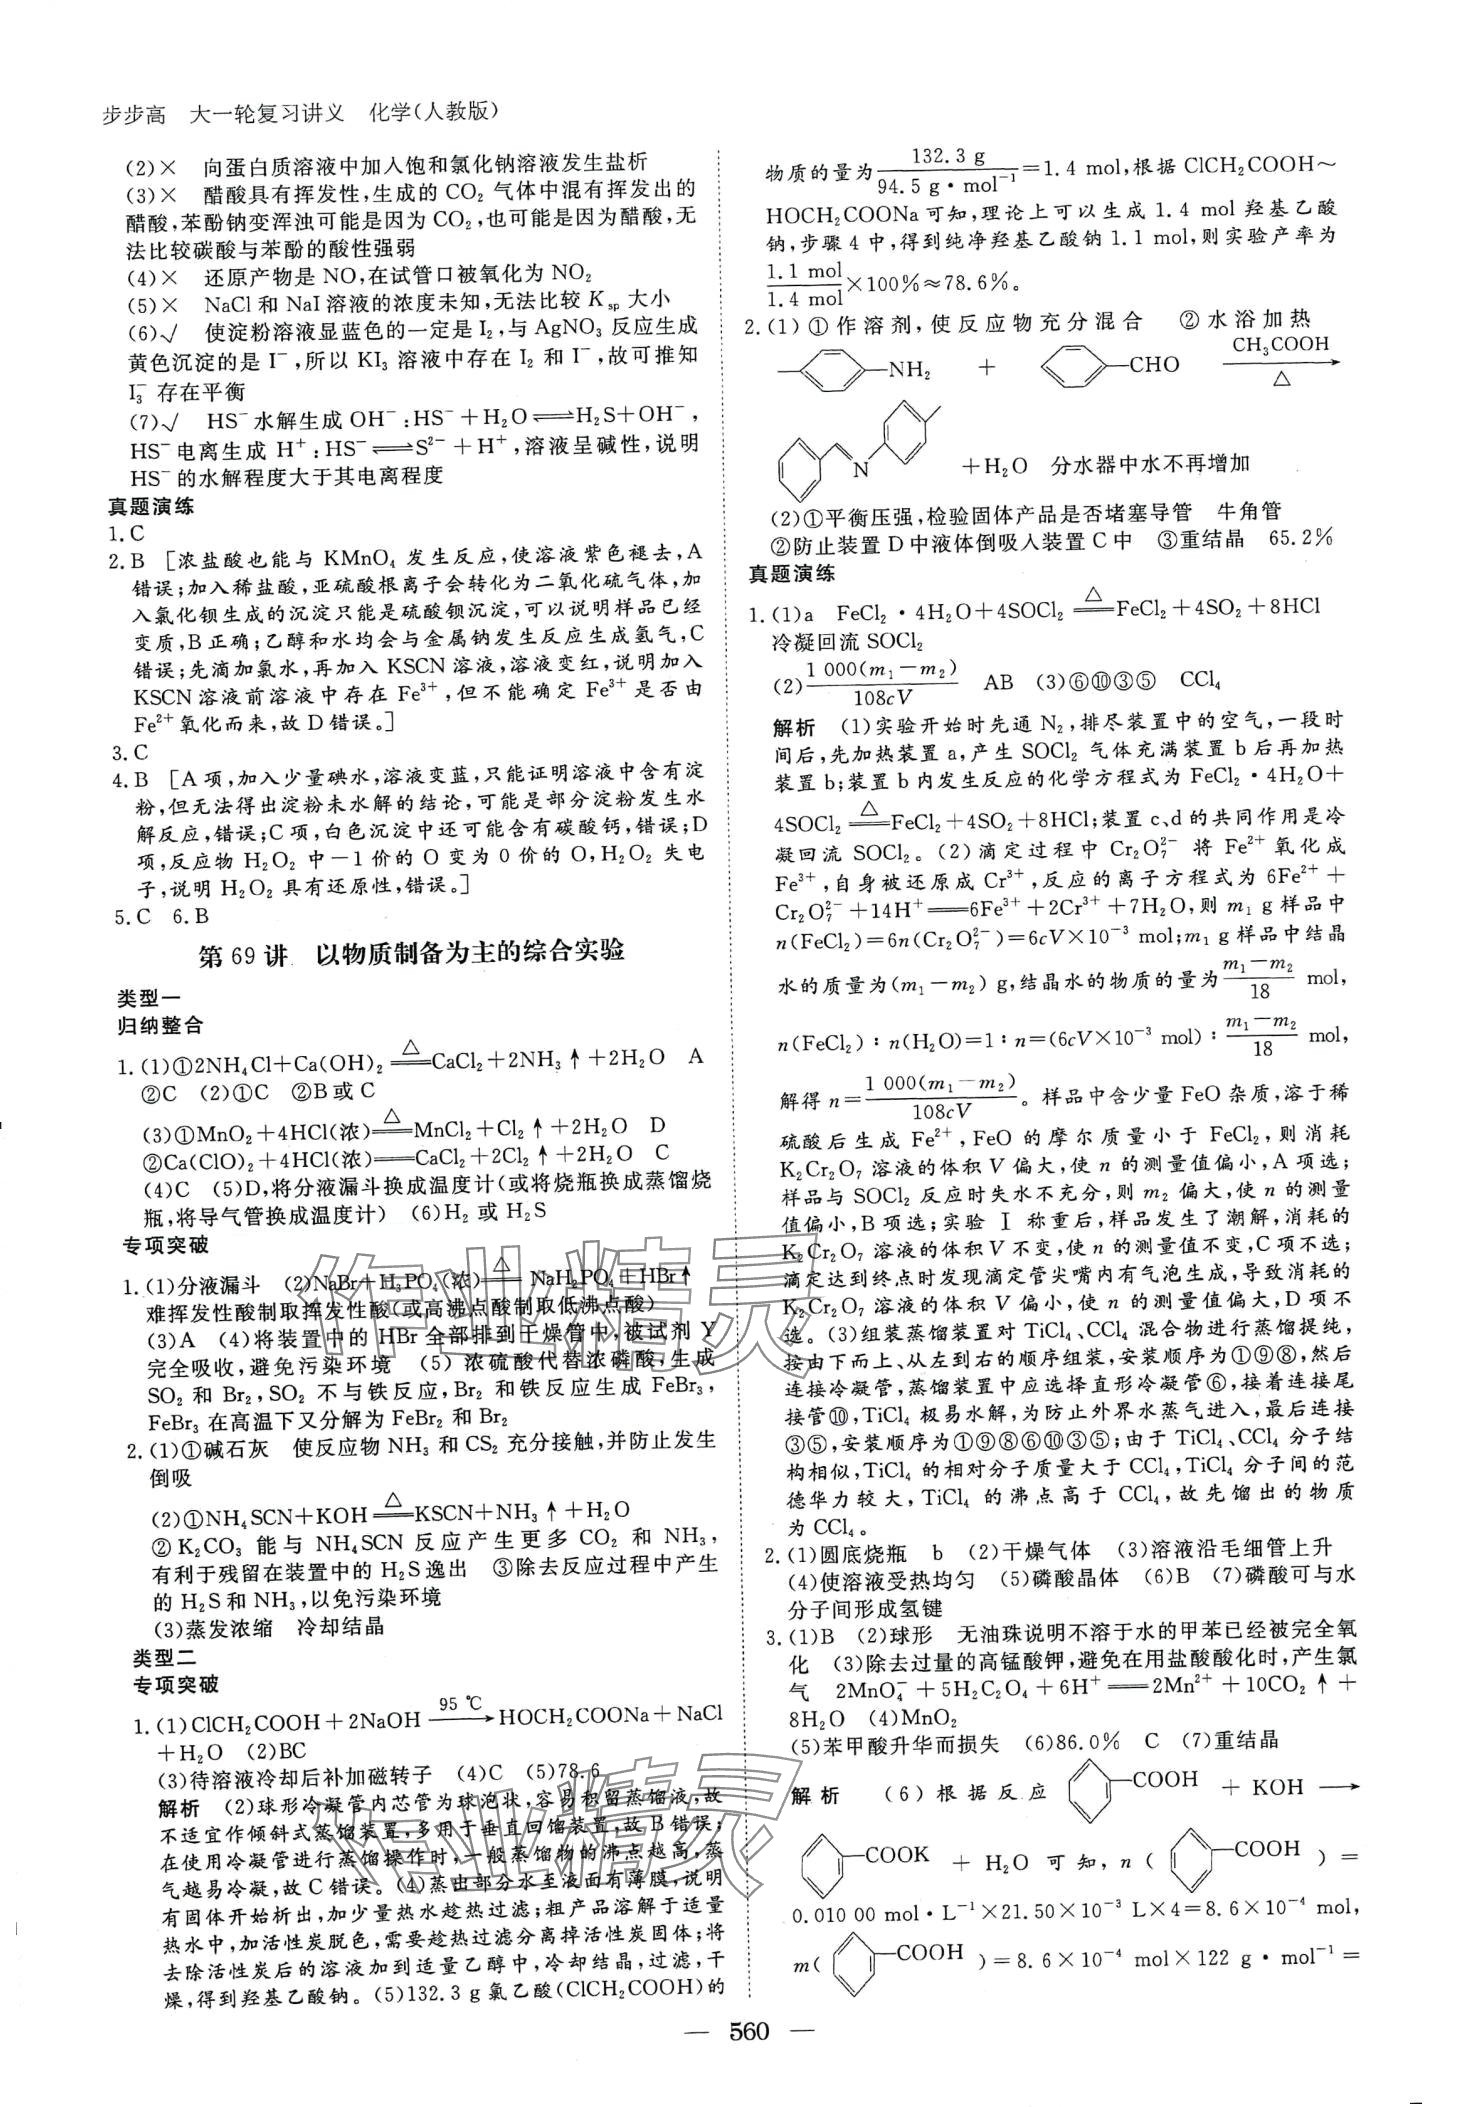 步步高 大一轮复习讲义 化学(人教版)
(2)× 向蛋白质溶液中加入饱和氯化钠溶液发生盐析
(3)× 醋酸具有挥发性,生成的 CO₂ 气体中混有挥发出的
醋酸,苯酚钠变浑浊可能是因为 CO₂,也可能是因为醋酸,无
法比较碳酸与苯酚的酸性强弱
(4)× 还原产物是 NO,在试管口被氧化为 NO₂
(5)× NaCl 和 NaI 溶液的浓度未知,无法比较 Kₛₚ 大小
(6)√ 使淀粉溶液显蓝色的一定是 I₂,与 AgNO₃ 反应生成
黄色沉淀的是 I⁻,所以 KI₃ 溶液中存在 I₂ 和 I⁻,故可推知
I₃⁻ 存在平衡
(7)√ HS⁻水解生成 OH⁻:HS⁻+H₂O⇌H₂S+OH⁻,
HS⁻电离生成 H⁺:HS⁻⇌S²⁻+H⁺,溶液呈碱性,说明
HS⁻的水解程度大于其电离程度
真题演练
1.C
2.B [浓盐酸也能与 KMnO₄ 发生反应,使溶液紫色褪去,A
错误;加入稀盐酸,亚硫酸根离子会转化为二氧化硫气体,加
入氯化钡生成的沉淀只能是硫酸钡沉淀,可以说明样品已经
变质,B正确;乙醇和水均会与金属钠发生反应生成氢气,C
错误;先滴加氯水,再加入 KSCN 溶液,溶液变红,说明加入
KSCN 溶液前溶液中存在 Fe³⁺,但不能确定 Fe³⁺ 是否由
Fe²⁺氧化而来,故 D 错误。]
3.C
4.B [A 项,加入少量碘水,溶液变蓝,只能证明溶液中含有淀
粉,但无法得出淀粉未水解的结论,可能是部分淀粉发生水
解反应,错误;C 项,白色沉淀中还可能含有碳酸钙,错误;D
项,反应物 H₂O₂ 中-1 价的 O 变为 0 价的 O,H₂O₂ 失电
子,说明 H₂O₂ 具有还原性,错误。]
5.C 6.B
第 69 讲 以物质制备为主的综合实验
类型一
归纳整合
1.(1)①2NH₄Cl+Ca(OH)₂ =△= CaCl₂+2NH₃↑+2H₂O A
②C (2)①C ②B或 C
(3)①MnO₂+4HCl(浓) =△= MnCl₂+Cl₂↑+2H₂O D
②Ca(ClO)₂+4HCl(浓)══CaCl₂+2Cl₂↑+2H₂O C
(4)C (5)D,将分液漏斗换成温度计(或将烧瓶换成蒸馏烧
瓶,将导气管换成温度计) (6)H₂ 或 H₂S
专项突破
1.(1)分液漏斗 (2)NaBr+H₃PO₄(浓) =△= NaH₂PO₄+HBr↑
难挥发性酸制取挥发性酸(或高沸点酸制取低沸点酸)
(3)A (4)将装置中的 HBr 全部排到干燥管中,被试剂 Y
完全吸收,避免污染环境 (5)浓硫酸代替浓磷酸,生成
SO₂ 和 Br₂,SO₂ 不与铁反应,Br₂ 和铁反应生成 FeBr₃,
FeBr₃ 在高温下又分解为 FeBr₂ 和 Br₂
2.(1)①碱石灰 使反应物 NH₃ 和 CS₂ 充分接触,并防止发生
倒吸
(2)①NH₄SCN+KOH =△= KSCN+NH₃↑+H₂O
②K₂CO₃ 能与 NH₄SCN 反应产生更多 CO₂ 和 NH₃,
有利于残留在装置中的 H₂S逸出 ③除去反应过程中产生
的 H₂S和 NH₃,以免污染环境
(3)蒸发浓缩 冷却结晶
类型二
专项突破
1.(1)ClCH₂COOH+2NaOH —95 ℃→ HOCH₂COONa+NaCl
+H₂O (2)BC
(3)待溶液冷却后补加磁转子 (4)C (5)78.6
解析 (2)球形冷凝管内芯管为球泡状,容易积留蒸馏液,故
不适宜作倾斜式蒸馏装置,多用于垂直回馏装置,故 B错误;
在使用冷凝管进行蒸馏操作时,一般蒸馏物的沸点越高,蒸
气越易冷凝,故 C错误。(4)蒸出部分水至液面有薄膜,说明
有固体开始析出,加少量热水趁热过滤;粗产品溶解于适量
热水中,加活性炭脱色,需要趁热过滤分离掉活性炭固体;将
去除活性炭后的溶液加到适量乙醇中,冷却结晶,过滤,干
燥,得到羟基乙酸钠。(5)132.3 g氯乙酸(ClCH₂COOH)的
物质的量为 132.3 g/94.5 g·mol⁻¹=1.4 mol,根据 ClCH₂COOH~
HOCH₂COONa可知,理论上可以生成 1.4 mol 羟基乙酸
钠,步骤4中,得到纯净羟基乙酸钠 1.1 mol,则实验产率为
1.1 mol/1.4 mol×100%≈78.6%。
2.(1)①作溶剂,使反应物充分混合 ②水浴加热
—NH₂ + —CHO CH₃COOH △
N +H₂O 分水器中水不再增加
(2)①平衡压强,检验固体产品是否堵塞导管 牛角管
②防止装置 D 中液体倒吸入装置 C 中 ③重结晶 65.2%
真题演练
1.(1)a FeCl₂·4H₂O+4SOCl₂ =△= FeCl₂+4SO₂+8HCl
冷凝回流 SOCl₂
(2)1 000(m₁-m₂)/108cV AB (3)⑥⑩③⑤ CCl₄
解析 (1)实验开始时先通 N₂,排尽装置中的空气,一段时
间后,先加热装置 a,产生 SOCl₂ 气体充满装置 b 后再加热
装置 b;装置 b 内发生反应的化学方程式为 FeCl₂·4H₂O+
4SOCl₂ =△= FeCl₂+4SO₂+8HCl;装置 c、d 的共同作用是冷
凝回流 SOCl₂。(2)滴定过程中 Cr₂O₇²⁻ 将 Fe²⁺ 氧化成
Fe³⁺,自身被还原成 Cr³⁺,反应的离子方程式为 6Fe²⁺+
Cr₂O₇²⁻+14H⁺══6Fe³⁺+2Cr³⁺+7H₂O,则 m₁ g 样品中
n(FeCl₂)=6n(Cr₂O₇²⁻)=6cV×10⁻³ mol;m₁ g 样品中结晶
水的质量为(m₁-m₂) g,结晶水的物质的量为 m₁-m₂/18 mol,
n(FeCl₂)∶n(H₂O)=1∶n=(6cV×10⁻³ mol)∶m₁-m₂/18 mol,
解得 n=1 000(m₁-m₂)/108cV。样品中含少量 FeO 杂质,溶于稀
硫酸后生成 Fe²⁺,FeO 的摩尔质量小于 FeCl₂,则消耗
K₂Cr₂O₇ 溶液的体积 V 偏大,使 n 的测量值偏小,A 项选;
样品与 SOCl₂ 反应时失水不充分,则 m₂ 偏大,使 n 的测量
值偏小,B 项选;实验 Ⅰ 称重后,样品发生了潮解,消耗的
K₂Cr₂O₇ 溶液的体积 V 不变,使 n 的测量值不变,C项不选;
滴定达到终点时发现滴定管尖嘴内有气泡生成,导致消耗的
K₂Cr₂O₇ 溶液的体积 V 偏小,使 n 的测量值偏大,D 项不
选。(3)组装蒸馏装置对 TiCl₄、CCl₄ 混合物进行蒸馏提纯,
按由下而上、从左到右的顺序组装,安装顺序为①⑨⑧,然后
连接冷凝管,蒸馏装置中应选择直形冷凝管⑥,接着连接尾
接管⑩,TiCl₄ 极易水解,为防止外界水蒸气进入,最后连接
③⑤,安装顺序为①⑨⑧⑥⑩③⑤;由于 TiCl₄、CCl₄ 分子结
构相似,TiCl₄ 的相对分子质量大于 CCl₄,TiCl₄ 分子间的范
德华力较大,TiCl₄ 的沸点高于 CCl₄,故先馏出的物质
为 CCl₄。
2.(1)圆底烧瓶 b (2)干燥气体 (3)溶液沿毛细管上升
(4)使溶液受热均匀 (5)磷酸晶体 (6)B (7)磷酸可与水
分子间形成氢键
3.(1)B (2)球形 无油珠说明不溶于水的甲苯已经被完全氧
化 (3)除去过量的高锰酸钾,避免在用盐酸酸化时,产生氯
气 2MnO₄⁻+5H₂C₂O₄+6H⁺══2Mn²⁺+10CO₂↑+
8H₂O (4)MnO₂
(5)苯甲酸升华而损失 (6)86.0% C (7)重结晶
解析 (6)根据反应 —COOH + KOH ⟶
—COOK + H₂O 可知,n( —COOH )=
0.010 00 mol·L⁻¹×21.50×10⁻³ L×4=8.6×10⁻⁴ mol,
m( —COOH )=8.6×10⁻⁴ mol×122 g·mol⁻¹=
— 560 —
作业精灵
作业精灵